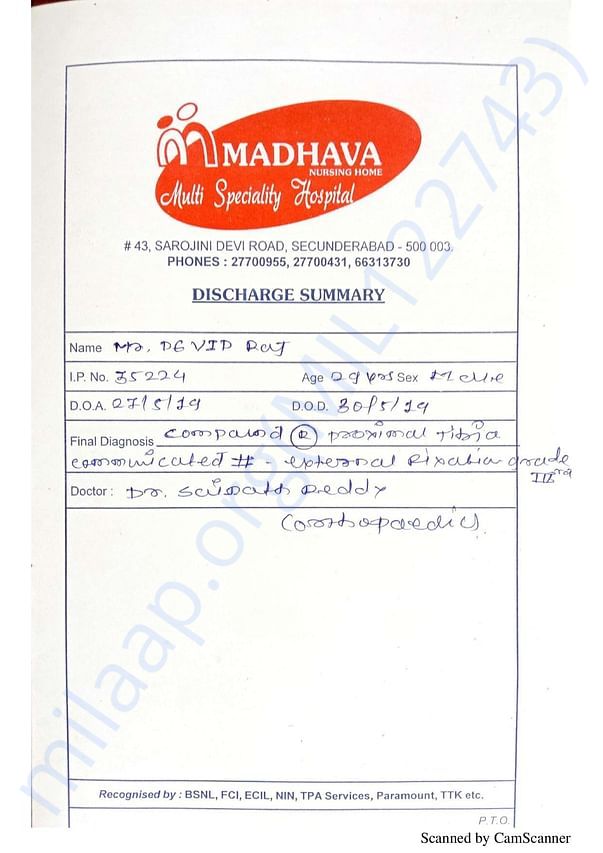 MADHAVA
NURSING HOME
Multi Speciality Hospital
# 43, SAROJINI DEVI ROAD, SECUNDERABAD - 500 003.
PHONES : 27700955, 27700431, 66313730
DISCHARGE SUMMARY
Name Mr. DEVID Raj
I.P. No. 35224 Age 29 yrs Sex Male
D.O.A. 27/5/19 D.O.D. 30/5/19
Final Diagnosis compound (R) proximal tibia
communicated # - external fixation grade
III
Doctor : Dr. Reddy
(orthopaedic)
Recognised by : BSNL, FCI, ECIL, NIN, TPA Services, Paramount, TTK etc.
P.T.O.
milaap.org(MIL122743)
Scanned by CamScanner